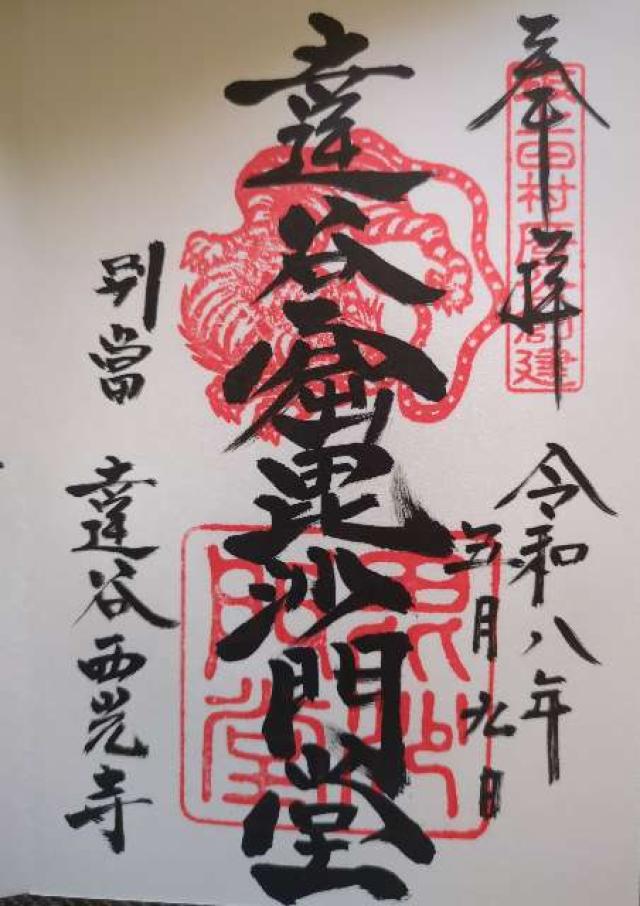 奉拝
坂上田村麿公創建
令和八年
五月九日
達谷窟毘沙門堂
毘沙門堂
別當
達谷西光寺